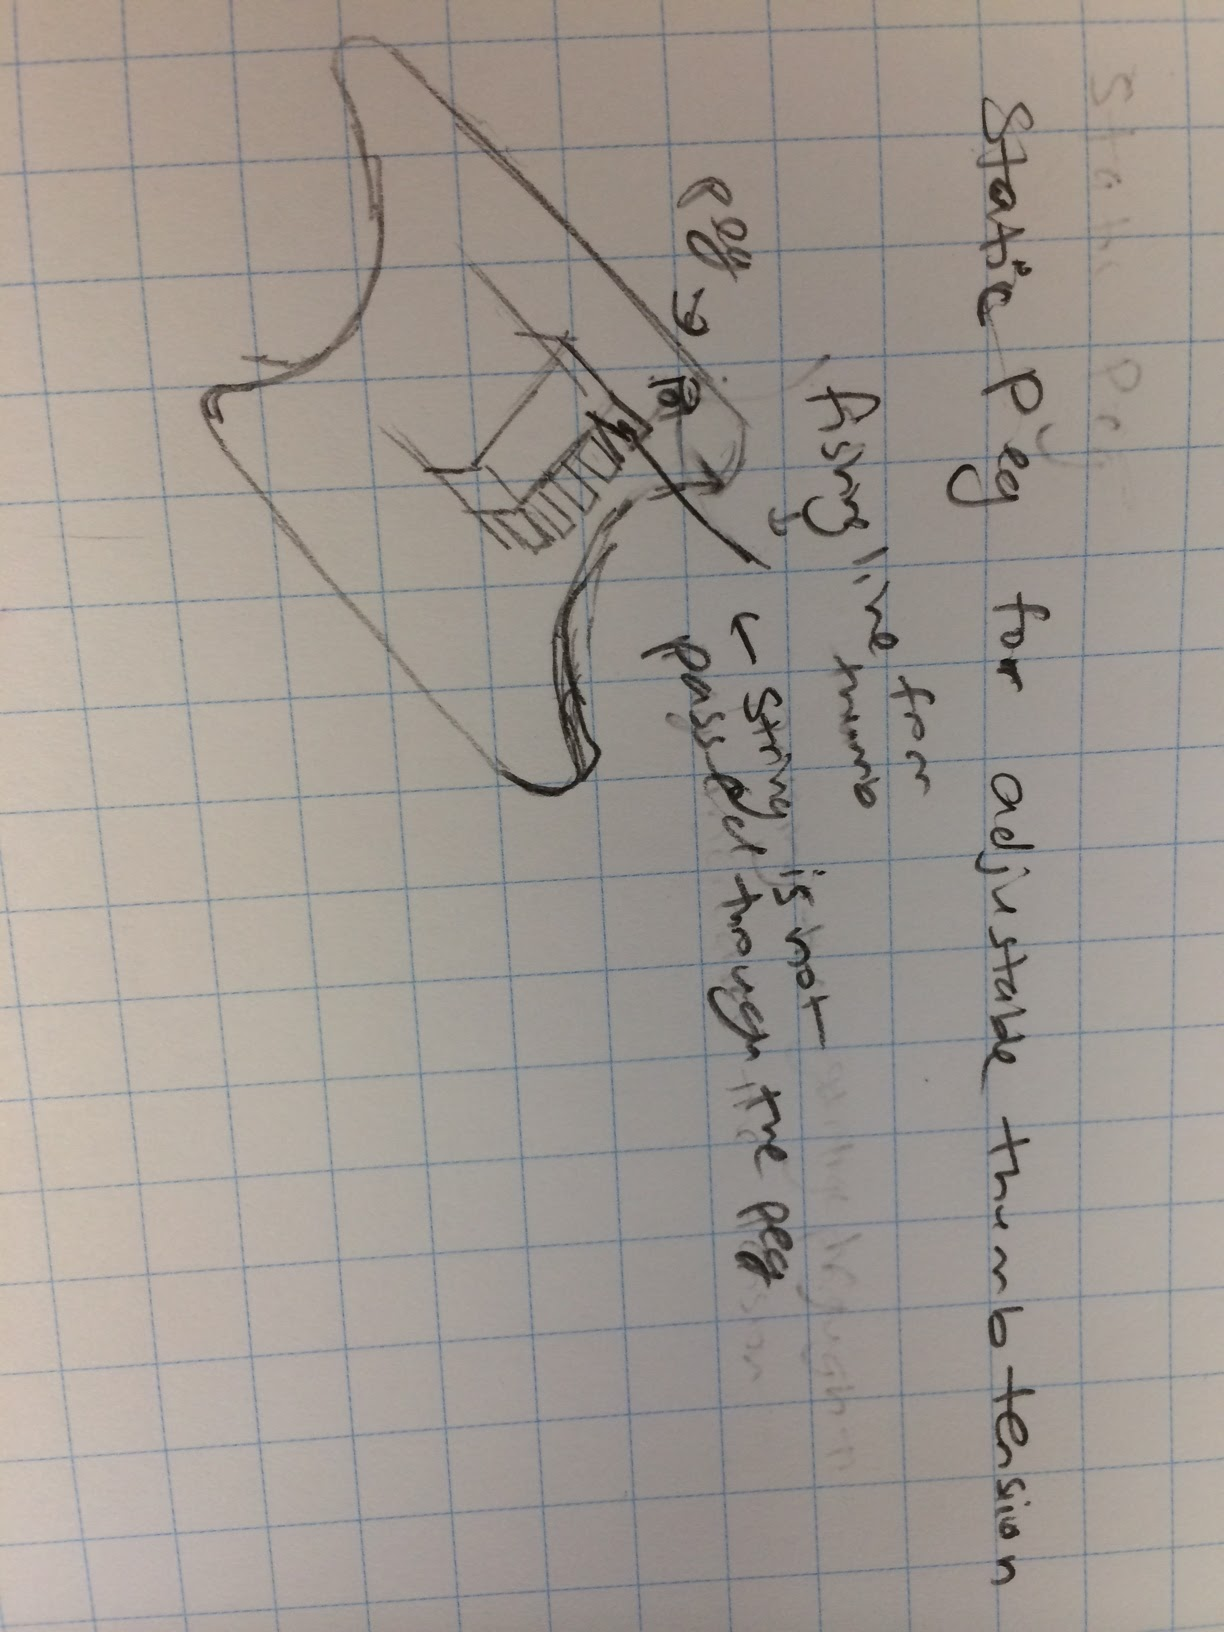 Static Peg for adjustable thumb tension
peg →
fishing line from
thumb
← string is not
passed through the peg